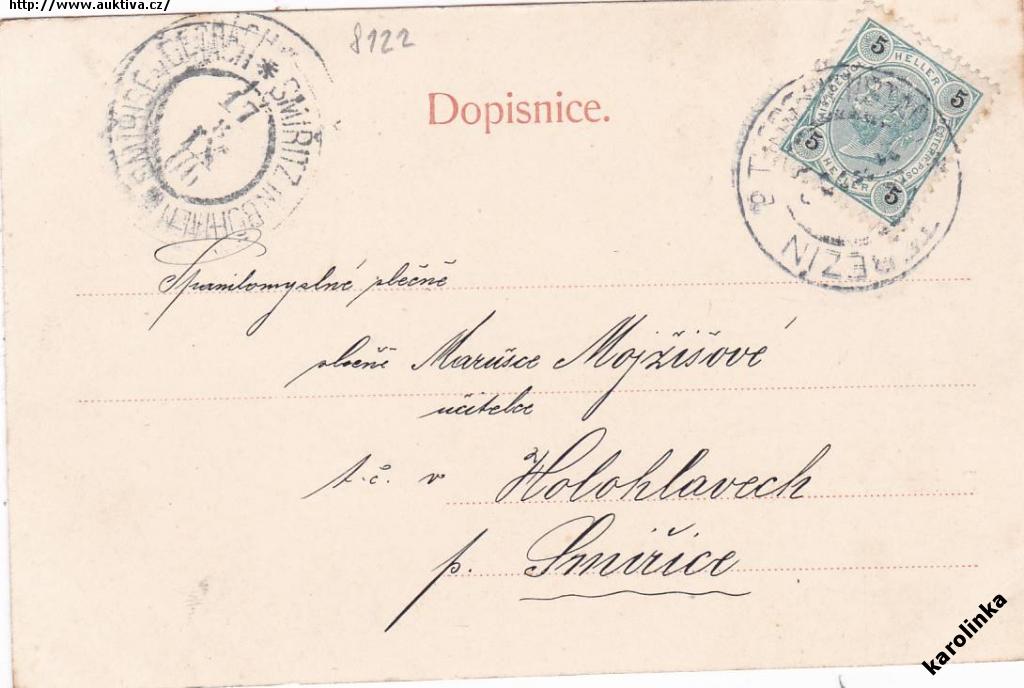 http://www.auktiva.cz/
8122
Dopisnice.
SMIŘICE V ČECHÁCH * SMIŘITZ IN BÖHMEN
17
5 HELLER 5
5 HELLER 5
TEREZÍN
Spanilomyslné slečně
slečně Marušce Mojžišové
učitelce
t.č. v Holohlavech
p. Smiřice
karolinka